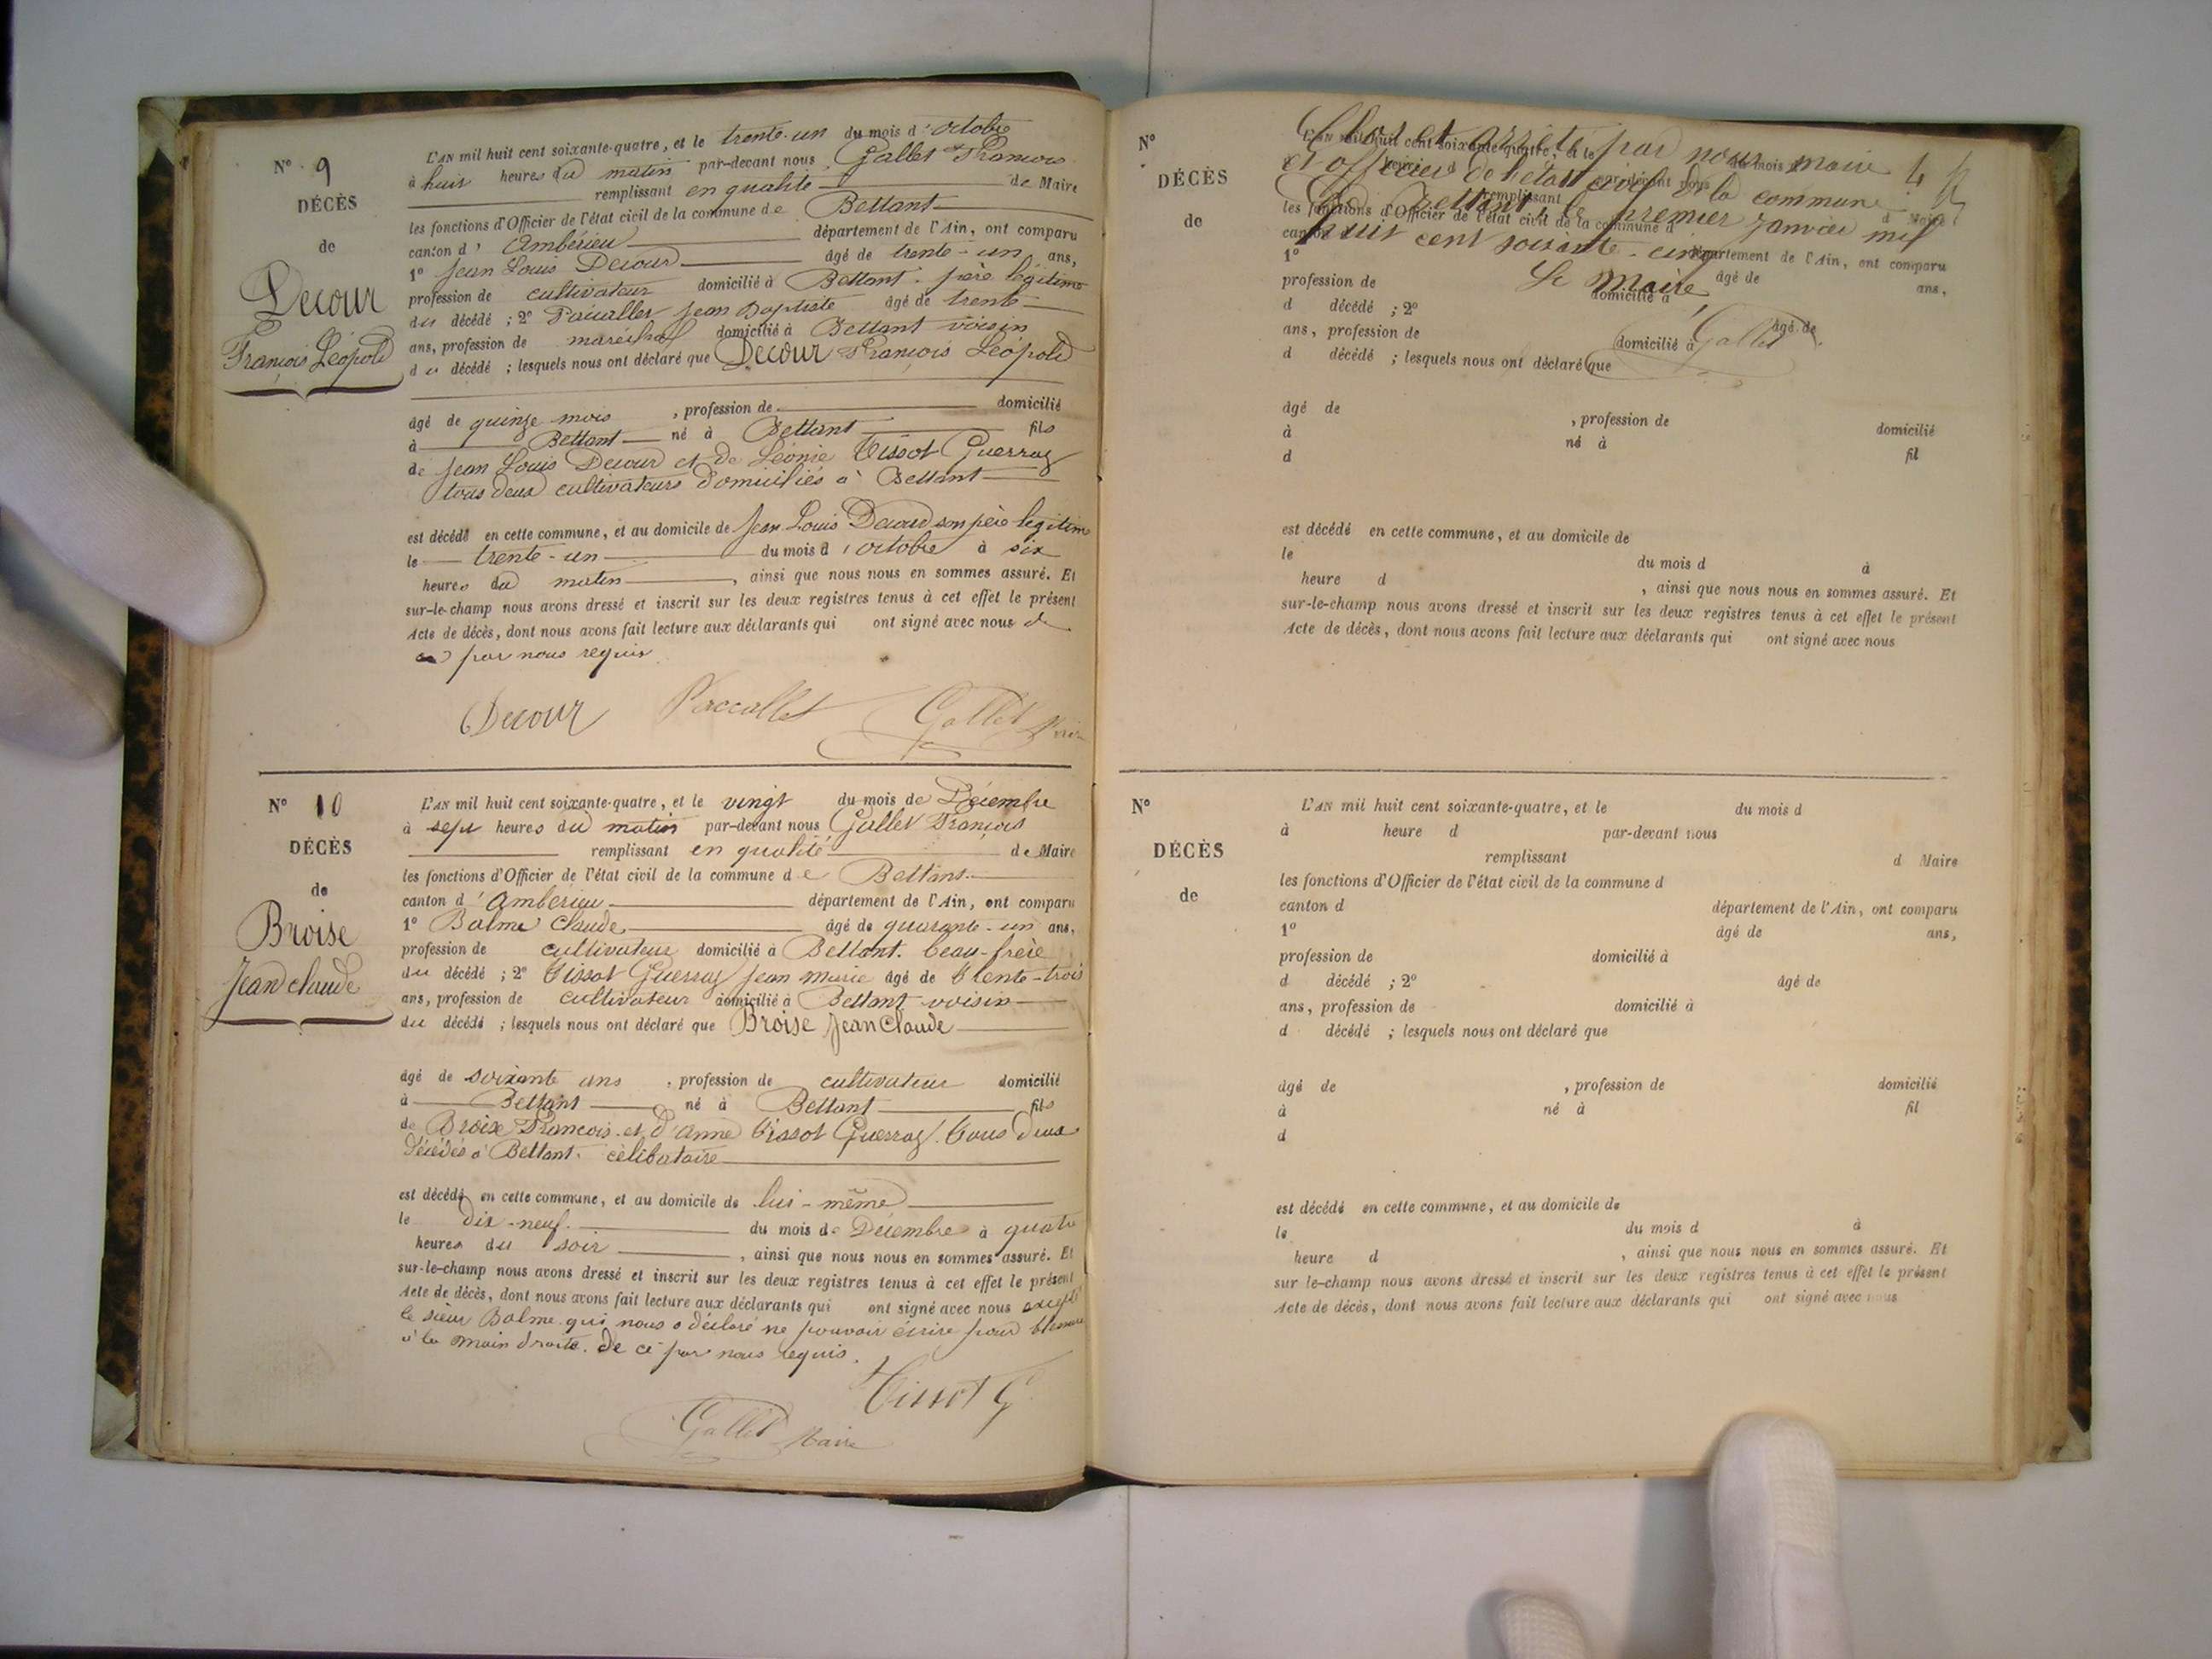 N° 9
DÉCÈS
de
Decour
François Léopold
L'AN mil huit cent soixante-quatre, et le trente-un du mois d'octobre
à huit heures du matin par-devant nous Gallet François
remplissant en qualité de Maire
les fonctions d'Officier de l'état civil de la commune de Bettant
canton d'Ambérieu département de l'Ain, ont comparu
1° Jean Louis Decour âgé de trente-un ans,
profession de cultivateur domicilié à Bettant. père légitime
du décédé ; 2° Paccallet Jean Baptiste âgé de trente
ans, profession de maréchal domicilié à Bettant voisin
du décédé ; lesquels nous ont déclaré que Decour François Léopold
âgé de quinze mois , profession de domicilié
à Bettant né à Bettant fils
de Jean Louis Decour et de Léonie Tissot Guerraz
tous deux cultivateurs domiciliés à Bettant
est décédé en cette commune, et au domicile de Jean Louis Decour son père légitime
le trente-un du mois d'octobre à six
heures du matin , ainsi que nous nous en sommes assuré. Et
sur-le-champ nous avons dressé et inscrit sur les deux registres tenus à cet effet le présent
Acte de décès, dont nous avons fait lecture aux déclarants qui ont signé avec nous de
ce par nous requis
Decour Paccallet Gallet Maire
N° 10
DÉCÈS
de
Broise
Jean claude
L'AN mil huit cent soixante-quatre, et le vingt du mois de Décembre
à sept heures du matin par-devant nous Gallet François
remplissant en qualité de Maire
les fonctions d'Officier de l'état civil de la commune de Bettant
canton d'Ambérieu département de l'Ain, ont comparu
1° Balme Claude âgé de quarante-un ans,
profession de cultivateur domicilié à Bettant. beau-frère
du décédé ; 2° Tissot Guerraz Jean Marie âgé de trente-trois
ans, profession de cultivateur domicilié à Bettant voisin
du décédé ; lesquels nous ont déclaré que Broise Jean Claude
âgé de soixante ans , profession de cultivateur domicilié
à Bettant né à Bettant fils
de Broise François et d'Anne Tissot Guerraz. tous deux
décédés à Bettant. célibataire
est décédé en cette commune, et au domicile de lui-même
le dix-neuf du mois de Décembre à quatre
heures du soir , ainsi que nous nous en sommes assuré. Et
sur-le-champ nous avons dressé et inscrit sur les deux registres tenus à cet effet le présent
Acte de décès, dont nous avons fait lecture aux déclarants qui ont signé avec nous excepté
le sieur Balme qui nous a déclaré ne pouvoir écrire pour blessure
à la main droite. de ce par nous requis.
Tissot G
Gallet Maire
N°
DÉCÈS
de
Clos et arrêté par nous maire
et officier de l'état civil de la commune
de Bettant, le premier janvier mil
huit cent soixante-cinq
Le Maire
Gallet
L'AN mil huit cent soixante-quatre, et le du mois d
par-devant nous
remplissant d Maire
les fonctions d'Officier de l'état civil de la commune d
canton d département de l'Ain, ont comparu
1° âgé de ans,
profession de domicilié à
d décédé ; 2° âgé de
ans, profession de domicilié à
d décédé ; lesquels nous ont déclaré que
âgé de , profession de domicilié
à né à fil
d
est décédé en cette commune, et au domicile de
le du mois d à
heure d , ainsi que nous nous en sommes assuré. Et
sur-le-champ nous avons dressé et inscrit sur les deux registres tenus à cet effet le présent
Acte de décès, dont nous avons fait lecture aux déclarants qui ont signé avec nous
N°
DÉCÈS
de
L'AN mil huit cent soixante-quatre, et le du mois d
à heure d par-devant nous
remplissant d Maire
les fonctions d'Officier de l'état civil de la commune d
canton d département de l'Ain, ont comparu
1° âgé de ans,
profession de domicilié à
d décédé ; 2° âgé de
ans, profession de domicilié à
d décédé ; lesquels nous ont déclaré que
âgé de , profession de domicilié
à né à fil
d
est décédé en cette commune, et au domicile de
le du mois d à
heure d , ainsi que nous nous en sommes assuré. Et
sur le-champ nous avons dressé et inscrit sur les deux registres tenus à cet effet le présent
Acte de décès, dont nous avons fait lecture aux déclarants qui ont signé avec nous